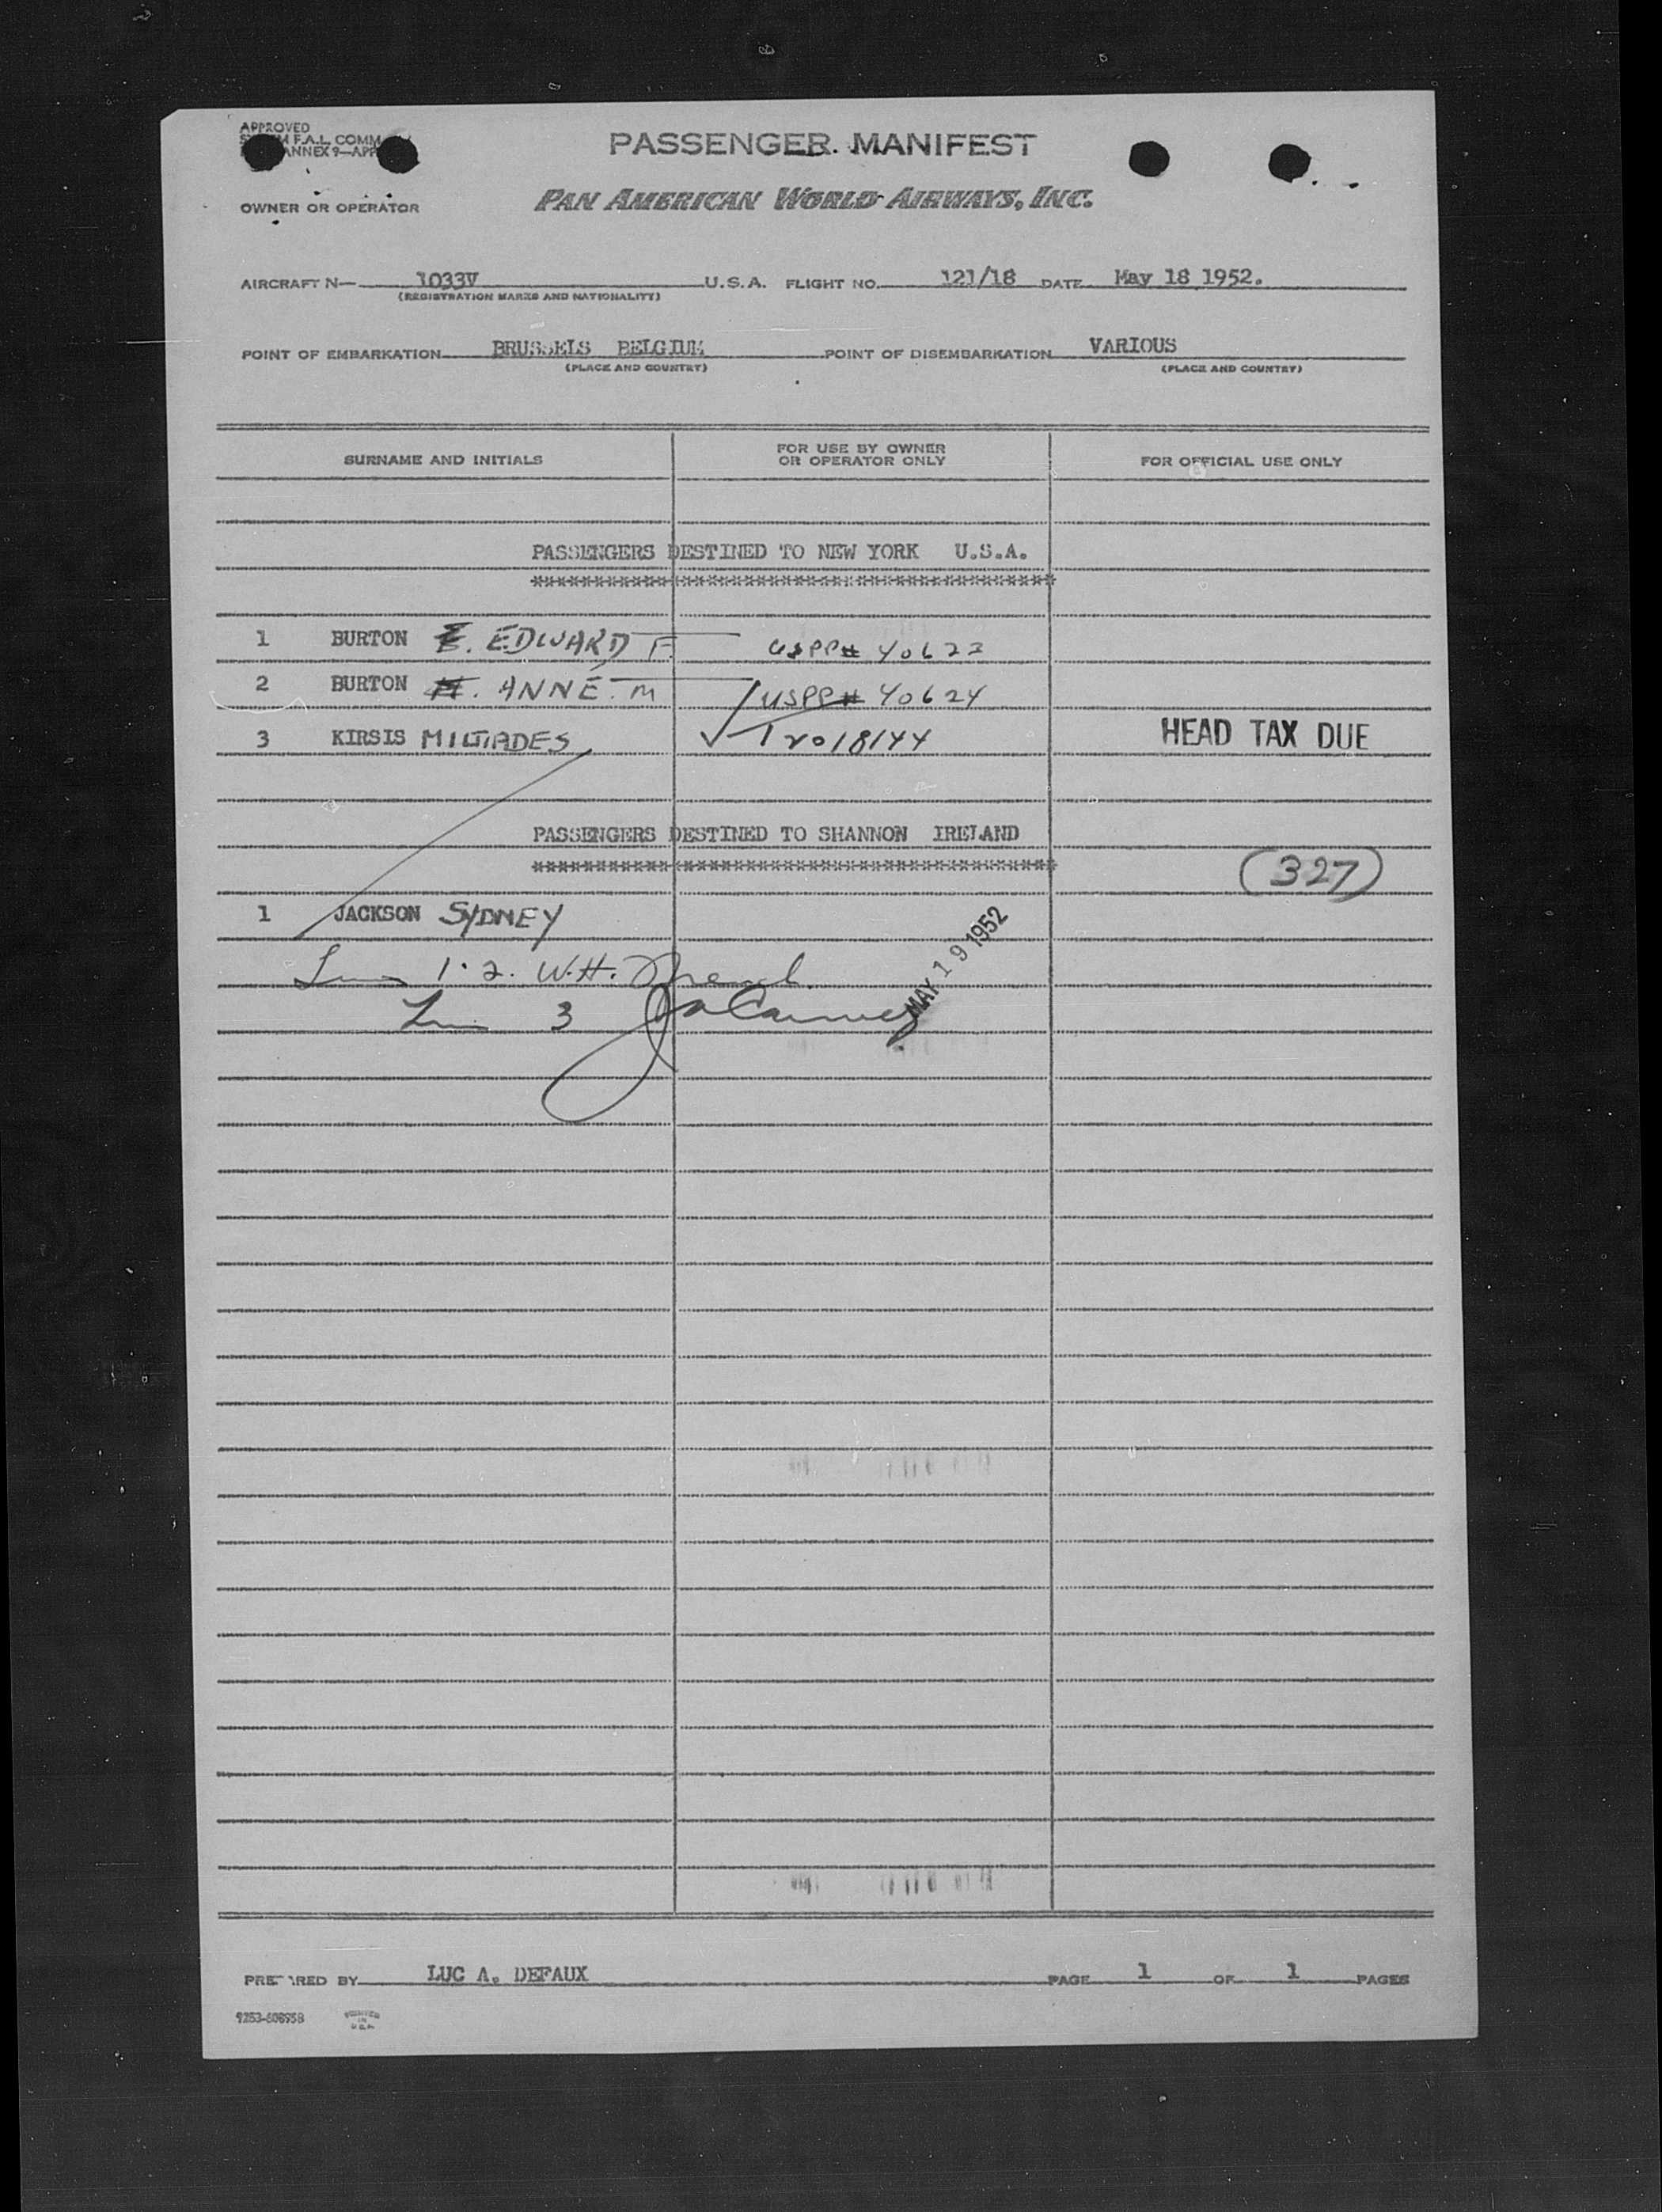 APPROVED
F.A.L. COMM
ANNEX 9—APP
PASSENGER MANIFEST
OWNER OR OPERATOR
PAN AMERICAN WORLD AIRWAYS, INC.
AIRCRAFT N— 1033V U.S.A. FLIGHT NO. 121/18 DATE May 18 1952.
(REGISTRATION MARKS AND NATIONALITY)
POINT OF EMBARKATION BRUSSELS BELGIUM POINT OF DISEMBARKATION VARIOUS
(PLACE AND COUNTRY) (PLACE AND COUNTRY)
SURNAME AND INITIALS FOR USE BY OWNER OR OPERATOR ONLY FOR OFFICIAL USE ONLY
PASSENGERS DESTINED TO NEW YORK U.S.A.
1 BURTON E. EDWARD F. USPP# 40623
2 BURTON ANNE. M USPP# 40624
3 KIRSIS MILTIADES 2018144 HEAD TAX DUE
PASSENGERS DESTINED TO SHANNON IRELAND
(327)
1 JACKSON SYDNEY
MAY 19 1952
1.2. W.H.
3
PREPARED BY LUC A. DEFAUX PAGE 1 OF 1 PAGES
9253-608958
PRINTED
IN
U.S.A.